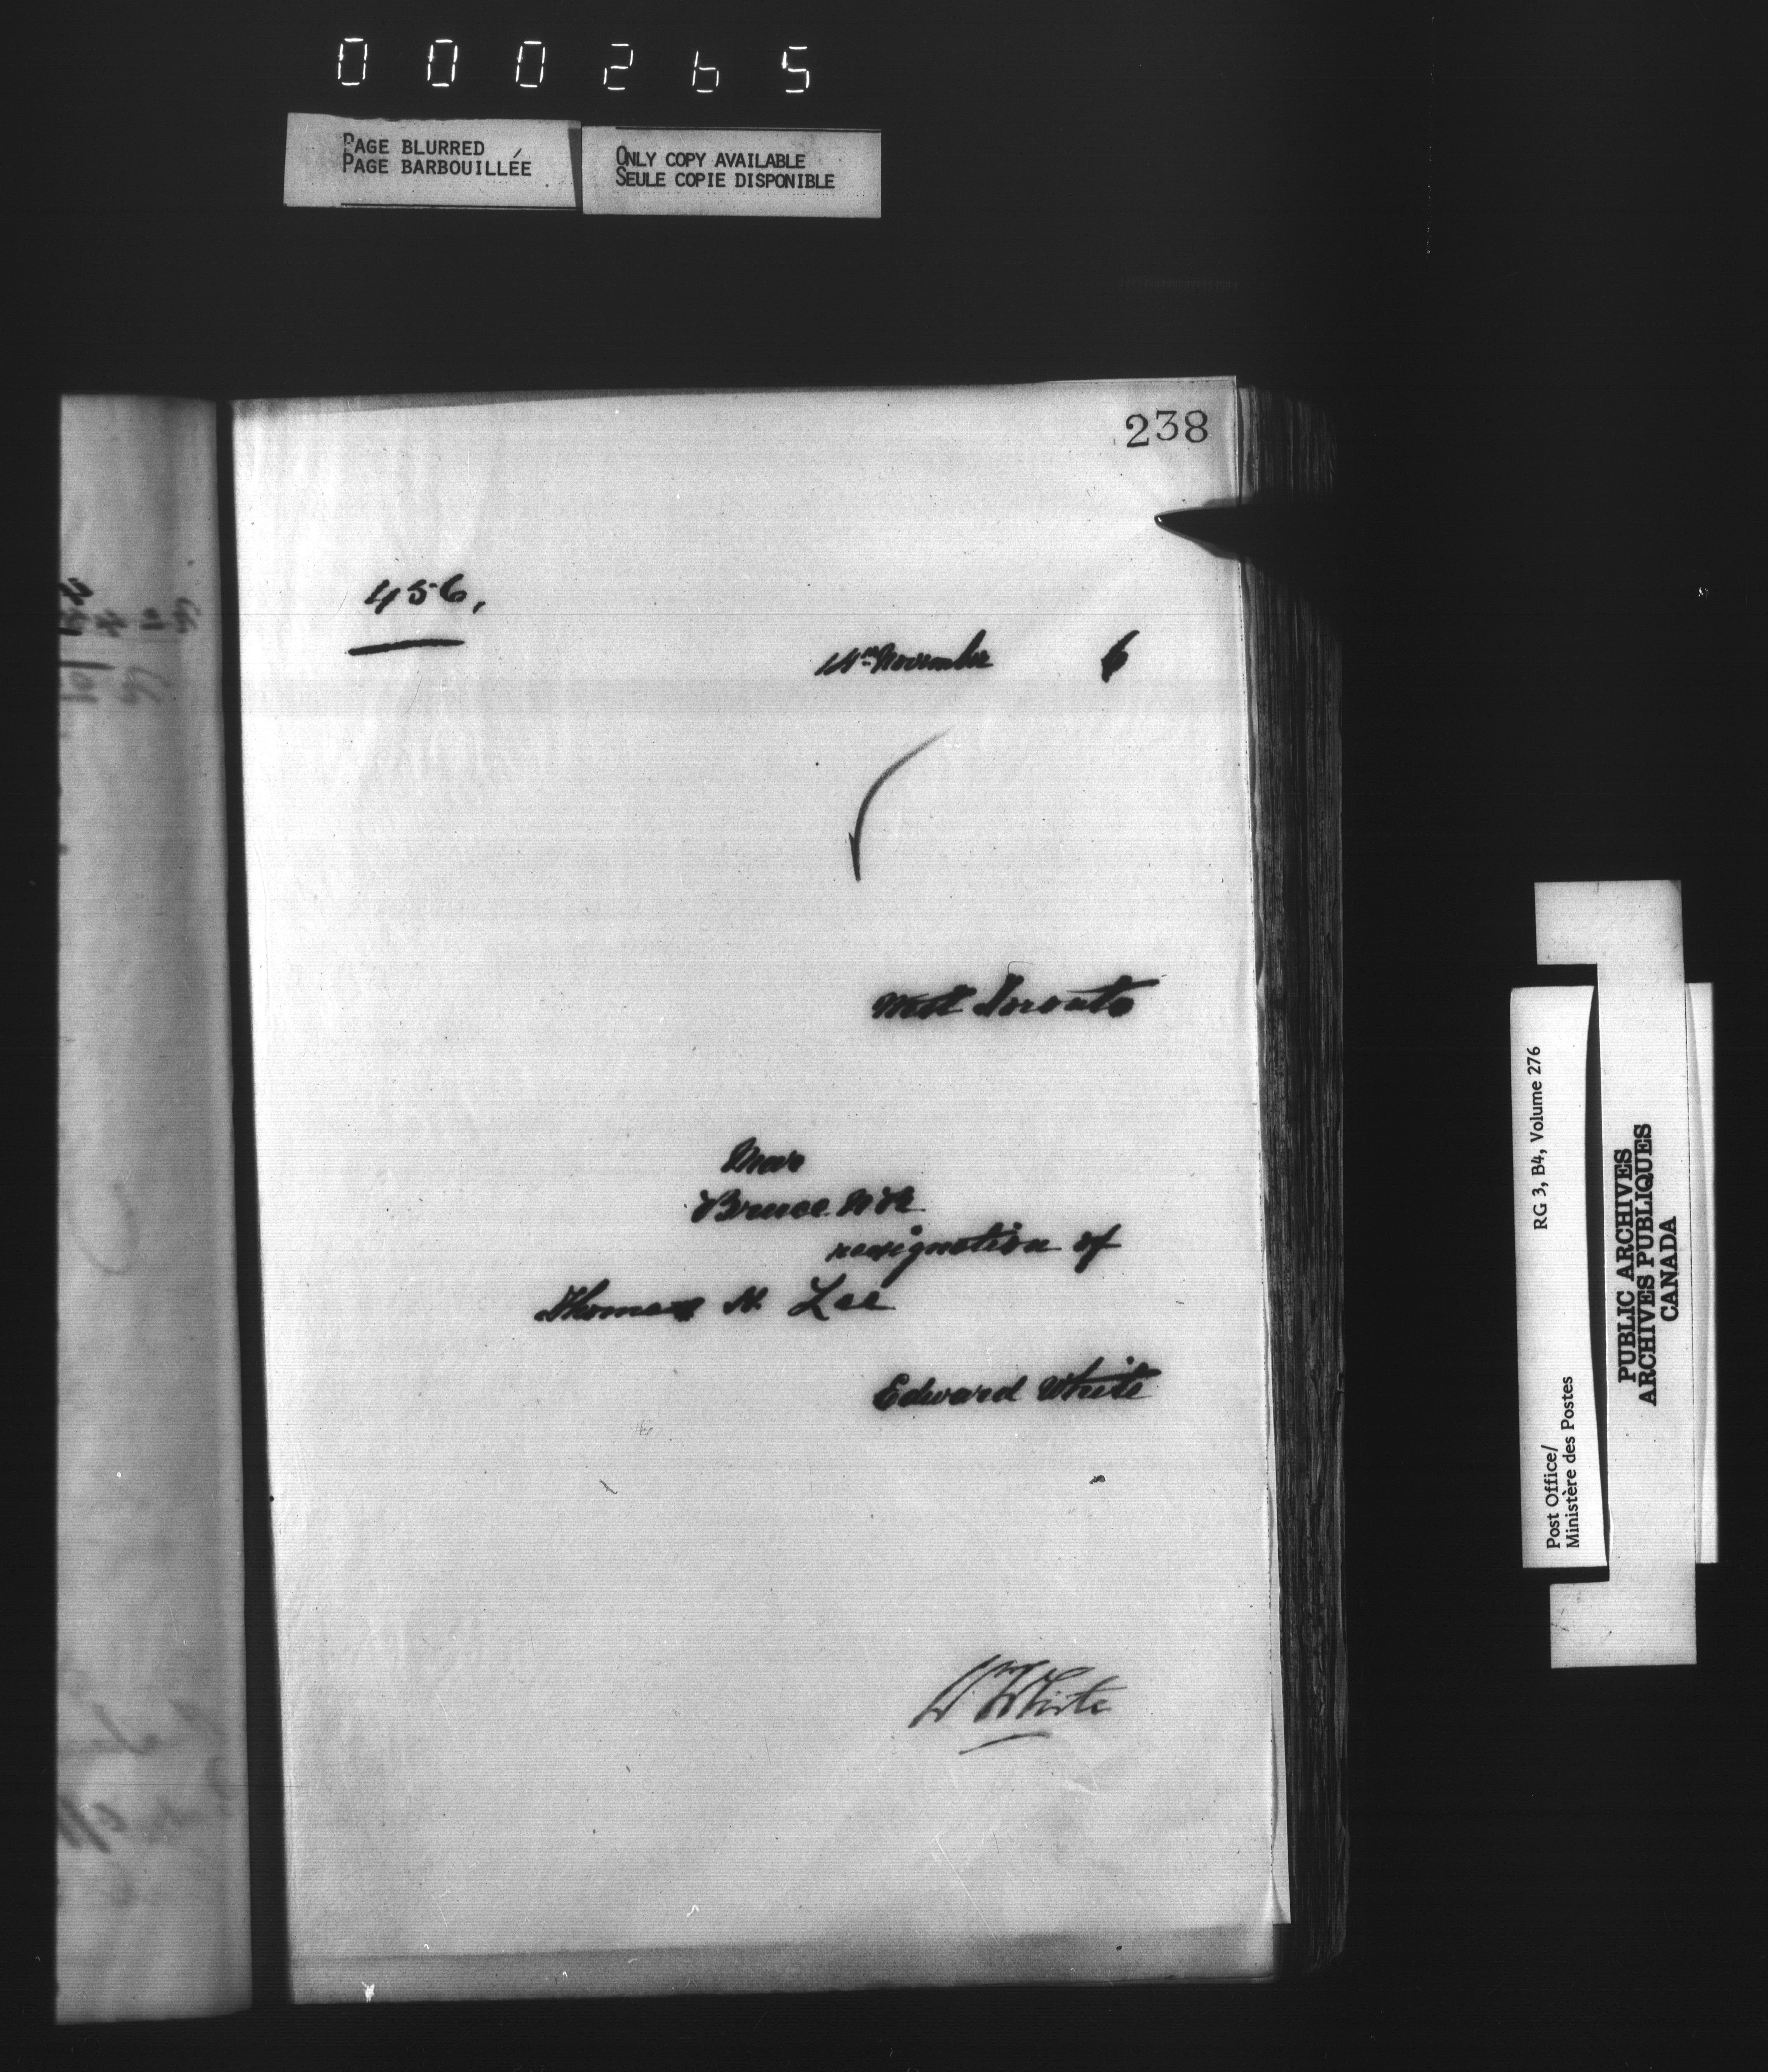 000265
PAGE BLURRED
PAGE BARBOUILLÉE
ONLY COPY AVAILABLE
SEULE COPIE DISPONIBLE
238
456,
November 6
West Toronto
Bruce
resignation of
Thomas H. Lee
Edward White
White
Post Office/
Ministère des Postes
RG 3, B4, Volume 276
PUBLIC ARCHIVES
ARCHIVES PUBLIQUES
CANADA